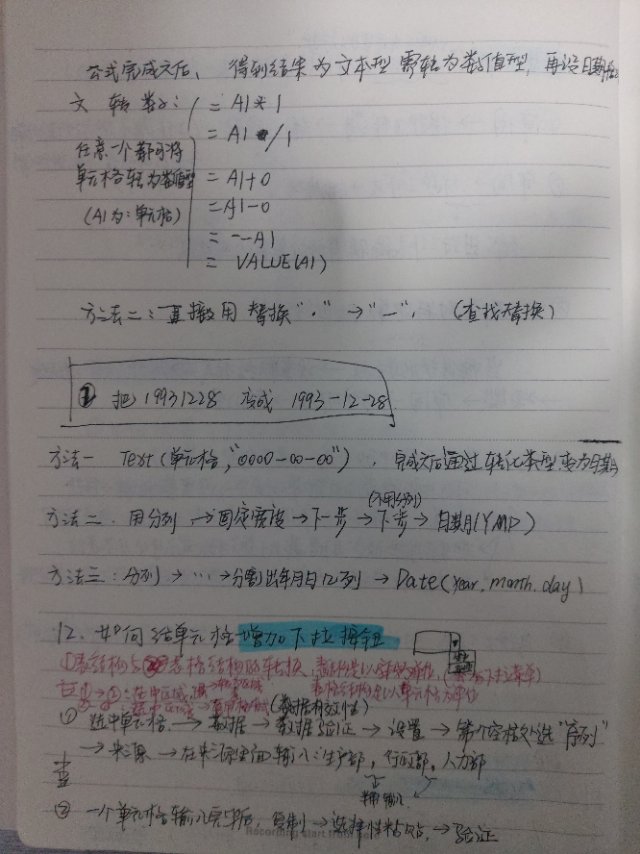 公式完成之后、得到结果为文本型需转为数值型，再设日期格
文转数：= A1*1
= A1/1
任意一个都可将
单元格转为数值型
= A1+0
(A1为:单元格)
= A1-0
= --A1
= VALUE(A1)
方法二：直接用替换"."→"-". (查找替换)
① 把19931228 变成 1993-12-28
方法一 Text(单元格,"0000-00-00")，完成之后通过转化类型变为日期
(不用分列)
方法二. 用分列 → 固定宽度 → 下一步 → 下一步 → 日期(YMD)
方法三：分列 → … → 分割出年月日3列 → Date(year, month, day)
12. 如何给单元格增加下拉按钮
①表结构与表格结构的转换, 表结构是以整块为单位,
表格结构是以单元格为单位
选中区域
(数据有效性)
① 选中单元格 → 数据 → 数据验证 → 设置 → 第一个空格处选"序列"
→ 来源 → 在来源里面输入：生产部，行政部，人力部
输入
② 一个单元格输入完毕后，复制 → 选择性粘贴 → 验证
Recording start from